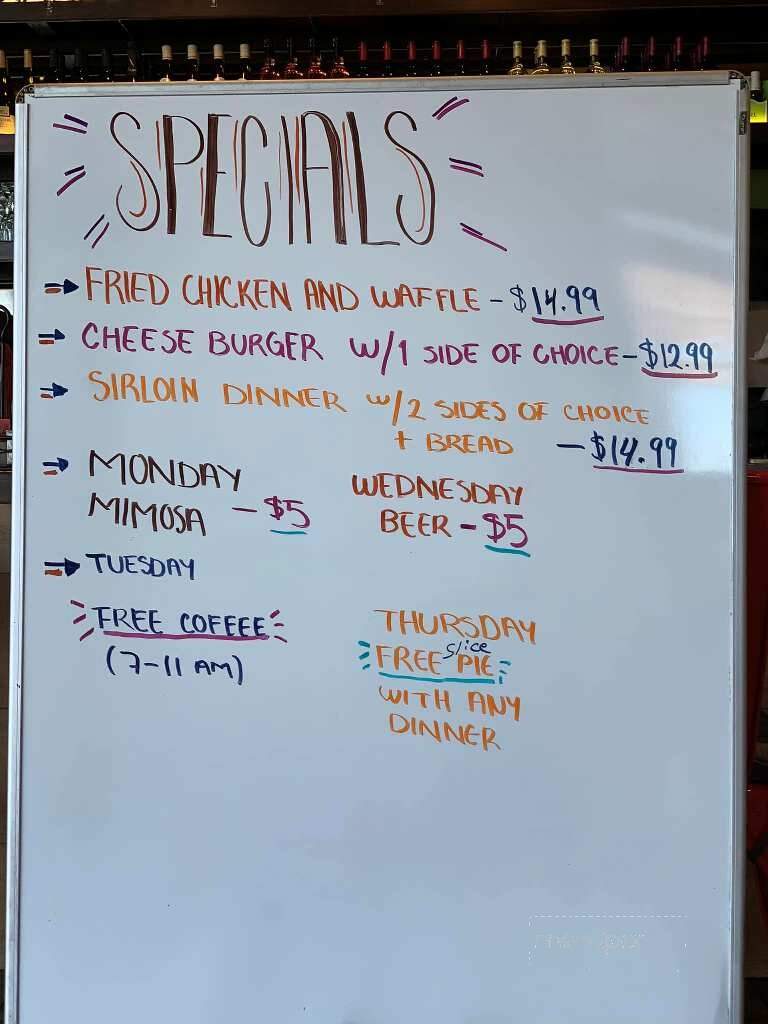 SPECIALS
FRIED CHICKEN AND WAFFLE - $14.99
CHEESE BURGER W/1 SIDE OF CHOICE - $12.99
SIRLOIN DINNER W/2 SIDES OF CHOICE
+ BREAD - $14.99
MONDAY
MIMOSA - $5
WEDNESDAY
BEER - $5
TUESDAY
FREE COFFEE
(7-11 AM)
THURSDAY
FREE slice PIE
WITH ANY
DINNER